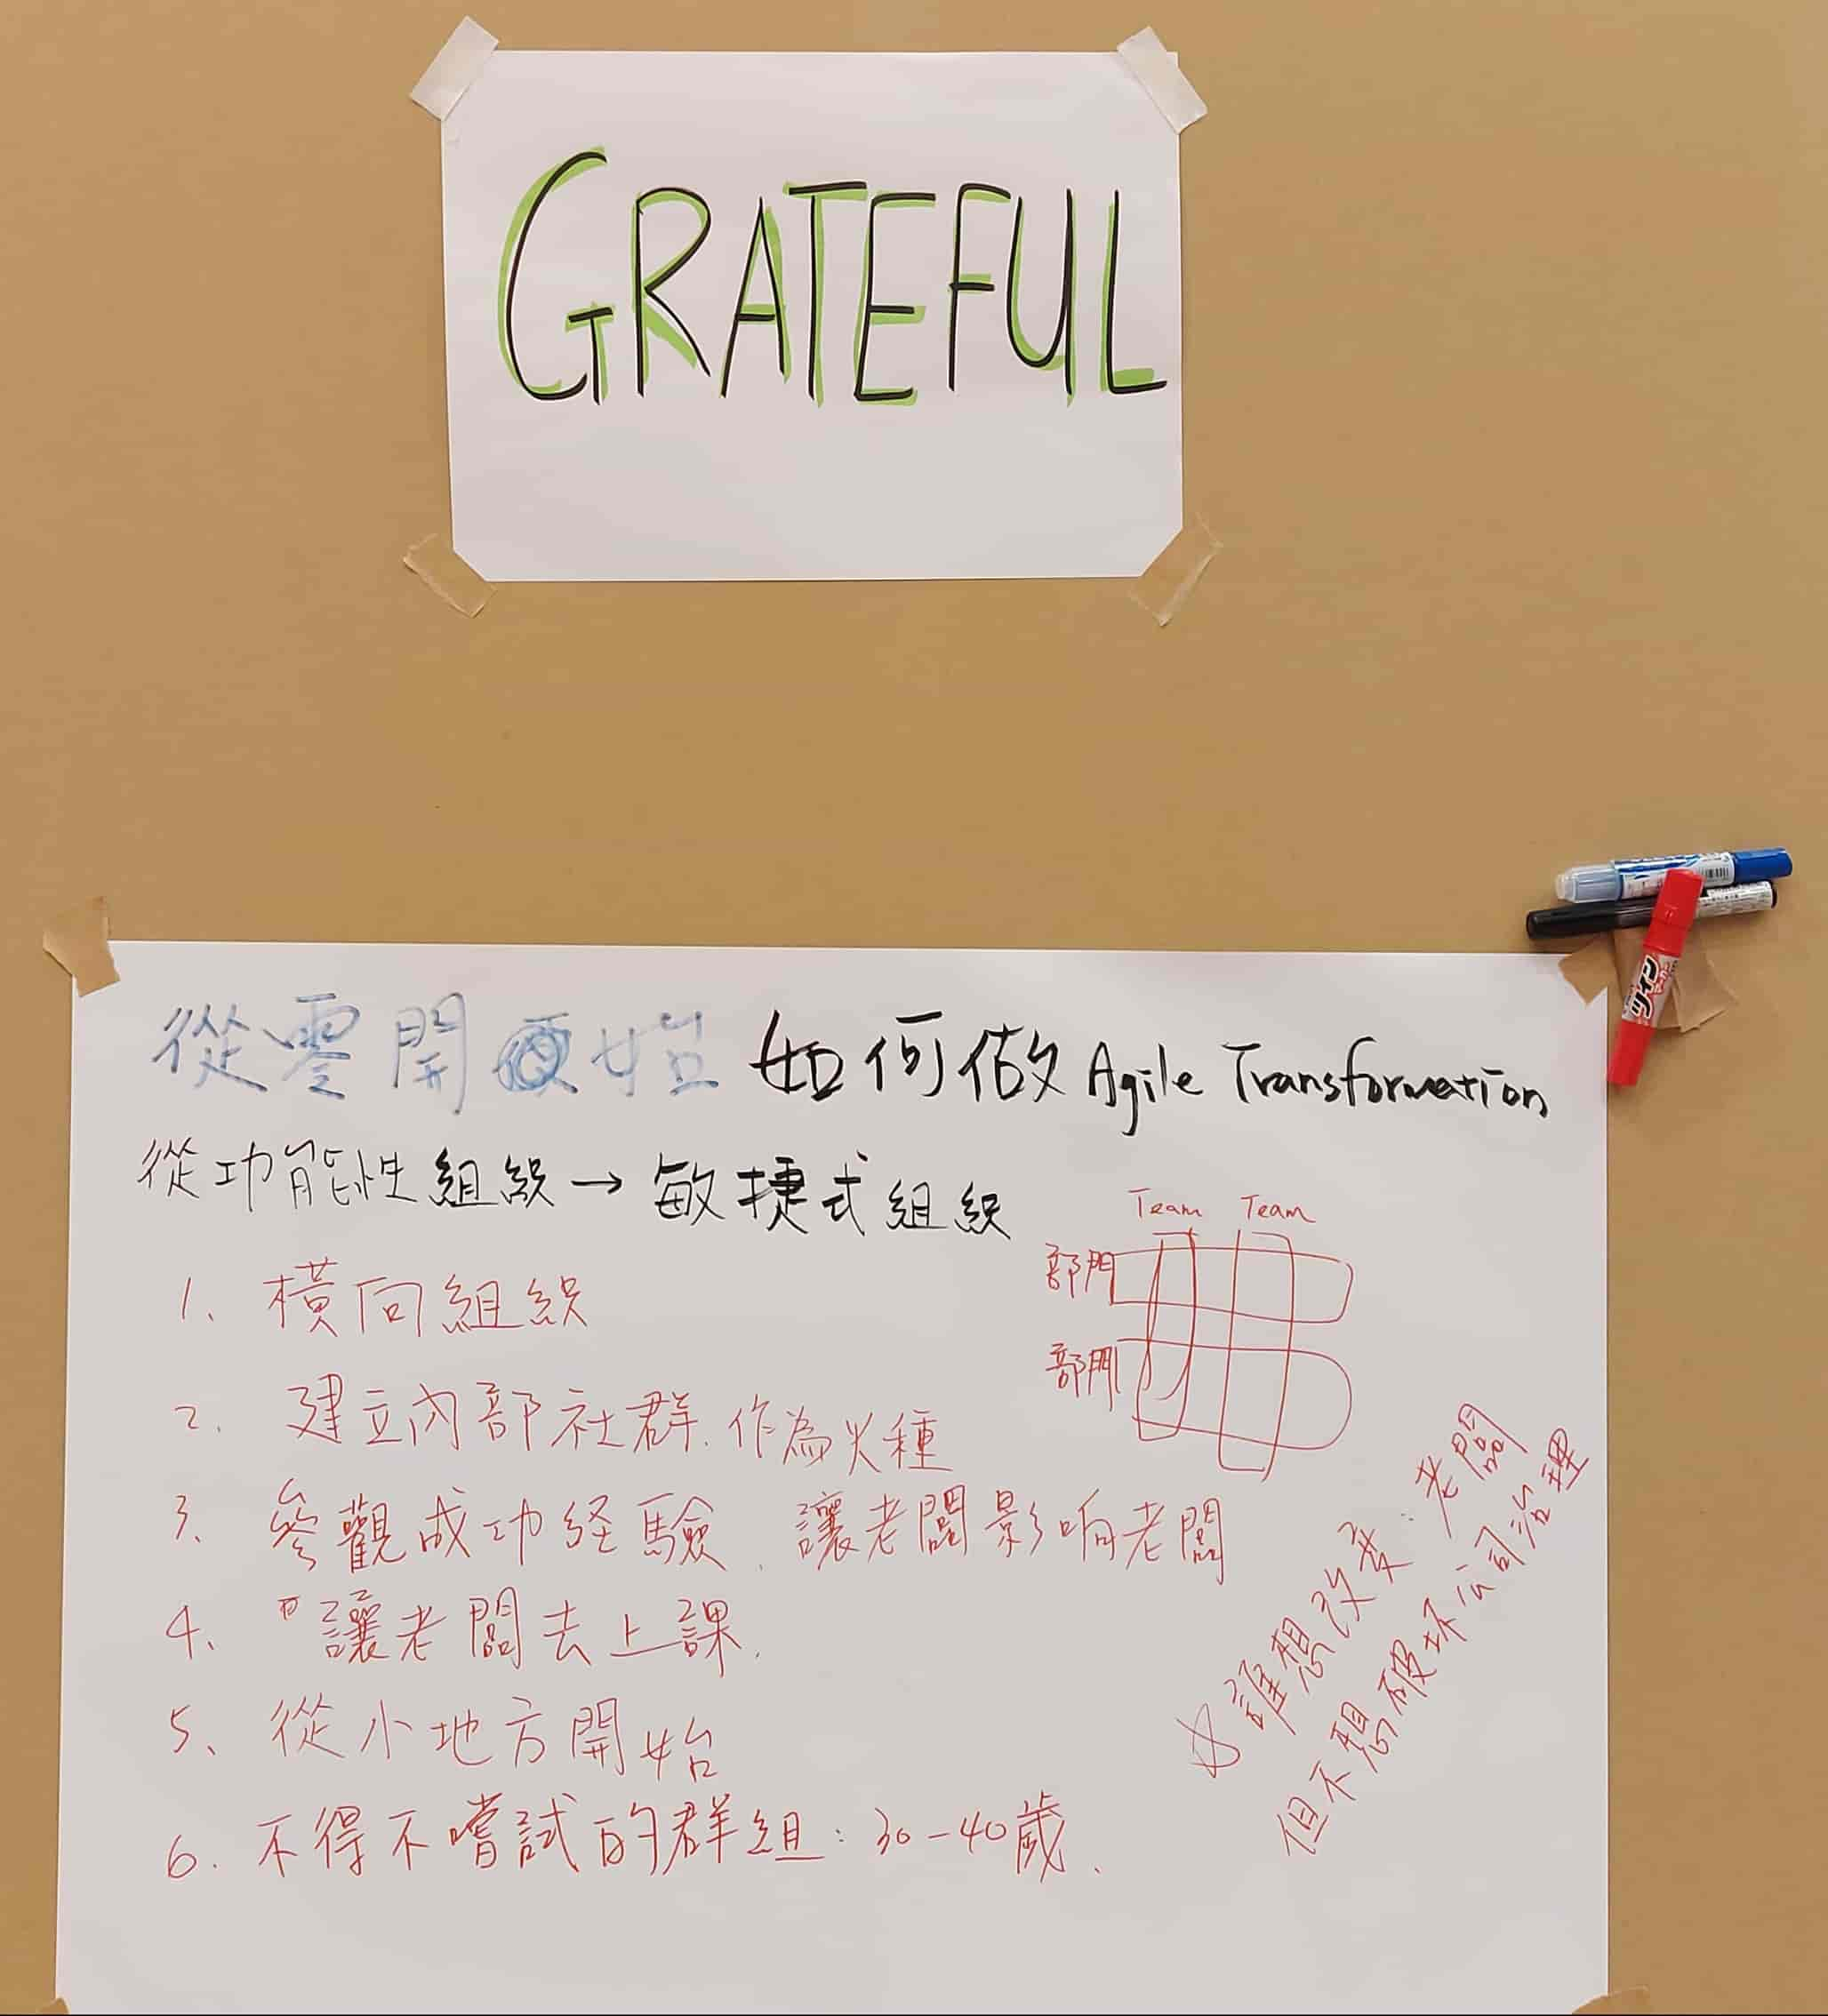 GRATEFUL
ツイン
從零開始 如何做 Agile Transformation
從功能性組織→敏捷式組織
Team Team
部門
部門
1. 橫向組織
2. 建立內部社群. 作為火種
3. 參觀成功経驗. 讓老闆影响老闆
4. 讓老闆去上課.
5. 從小地方開始
6. 不得不嚐試的群組: 30-40歲.
誰想改变: 老闆
但不想破坏公司治理